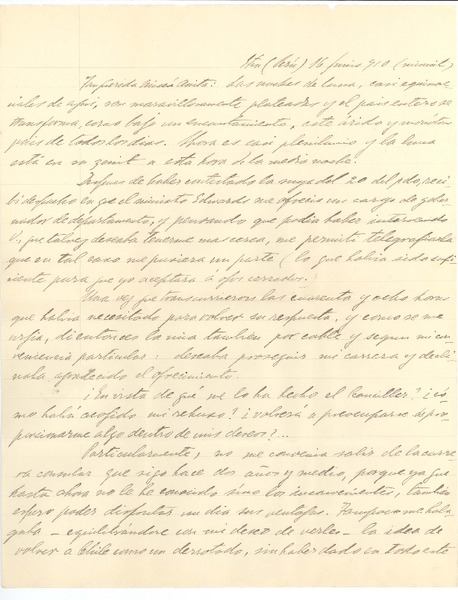 (Perú) 16 Junio 910 (
Misiá Anita: Las noches de luna, casi equinoc-
ciales de aquí, son maravillosamente plateadas y el país entero se
transforma, como bajo un encantamiento, este árido y monótono
país de todos los días. Ahora es casi plenilunio y la luna
está en su zenit a esta hora de la media noche.
Despues de haber contestado la suya del 20 del pdo, reci-
bí despacho en q el ministro Edwards me ofrecia un cargo de gober-
nador de departamento, y pensando que podia haber intervenido
V., que talvez deseaba tenerme mas cerca, me permití telegrafiarle
que en tal caso me pusiera un parte (lo que habria sido sufi-
ciente para que yo aceptara á ojos cerrados).
Una vez q transcurrieron las cuarenta y ocho horas
que habria necesitado para volver su respuesta, y como se me
urjía, di entonces la mia tambien por cable y segun mi con-
veniencia particular: deseaba proseguir mi carrera y decli-
naba agradeciendo el ofrecimiento.
¿En vista de qué me lo ha hecho el Canciller? ¿có-
mo habrá acojido mi rehuso? ¿volverá a preocuparse de pro-
porcionarme algo dentro de mis deseos?...
Particularmente, no me convenia salir de la carre-
ra consular que sigo hace dos años y medio, porque ya que
hasta ahora no le he conocido sino los inconvenientes, tambien
espero poder disfrutar un dia sus ventajas. Tampoco me hala-
gaba – equilibrándose con mi deseo de verles – la idea de
volver a Chile como un derrotado, sin haber dado en todo este